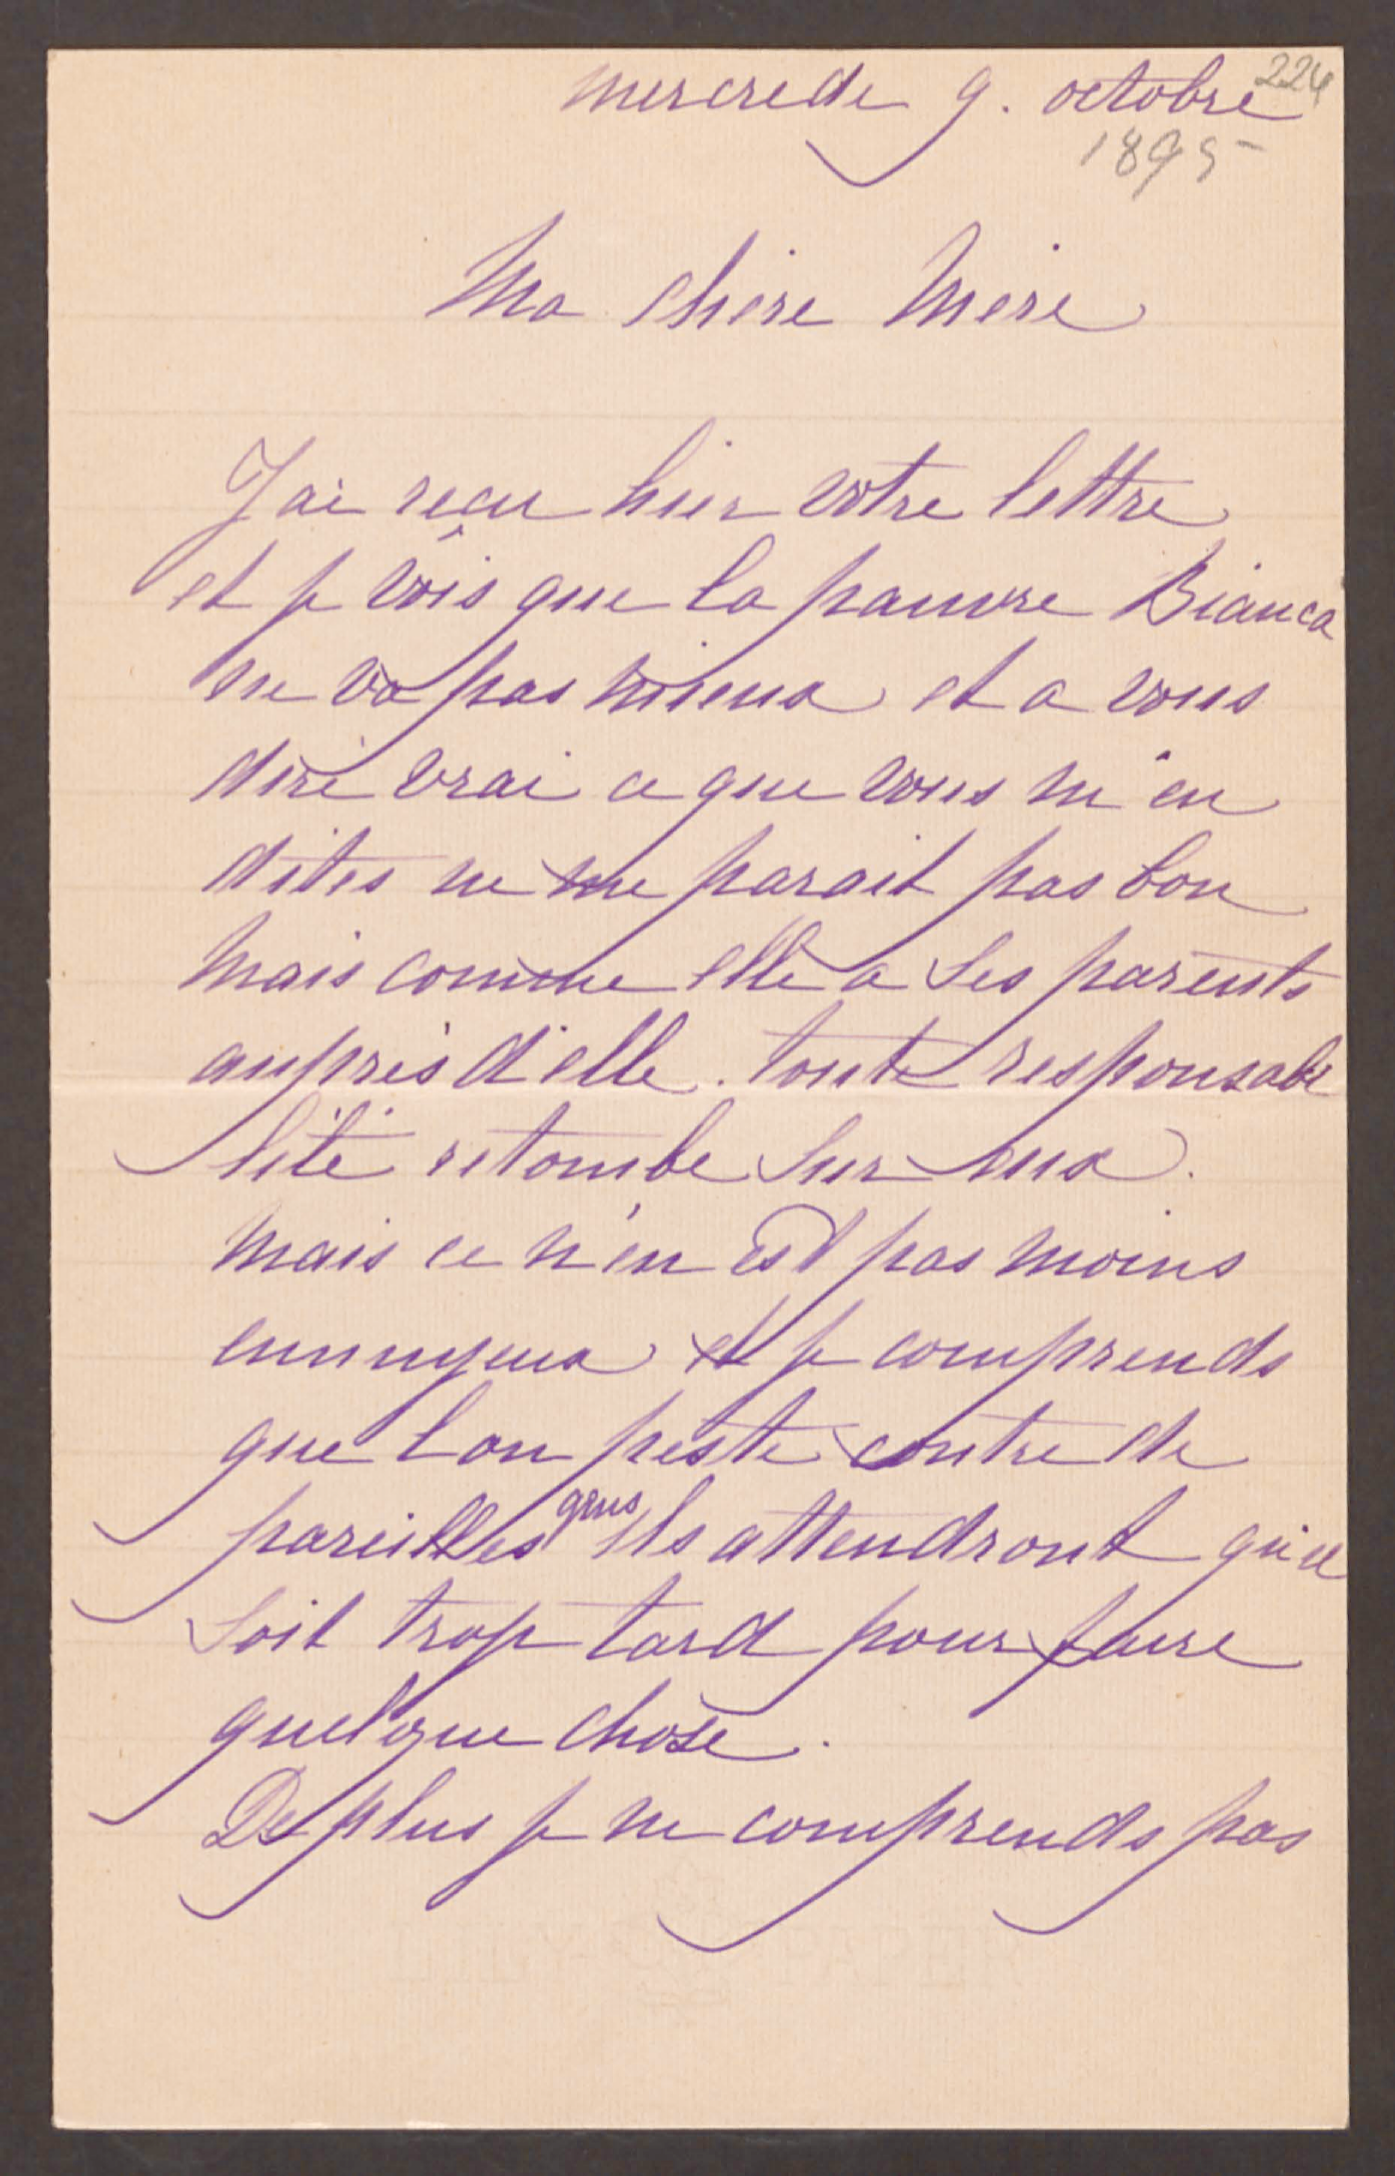 224
mercredi 9. octobre
1895
Ma chère Mère
J'ai reçu hier votre lettre
et je vois que la pauvre Bianca
ne va pas mieux et a vous
dire vrai ce que vous m'en
dites ne me parait pas bon
mais comme elle a ses parents
auprès d'elle. toute responsabi
lité retombe sur eux.
mais ce n'en est pas moins
ennuyeux et je comprends
que l'on peste contre de
pareilles gens ils attendront qu'il
soit trop tard pour faire
quelque chose.
De plus je ne comprends pas